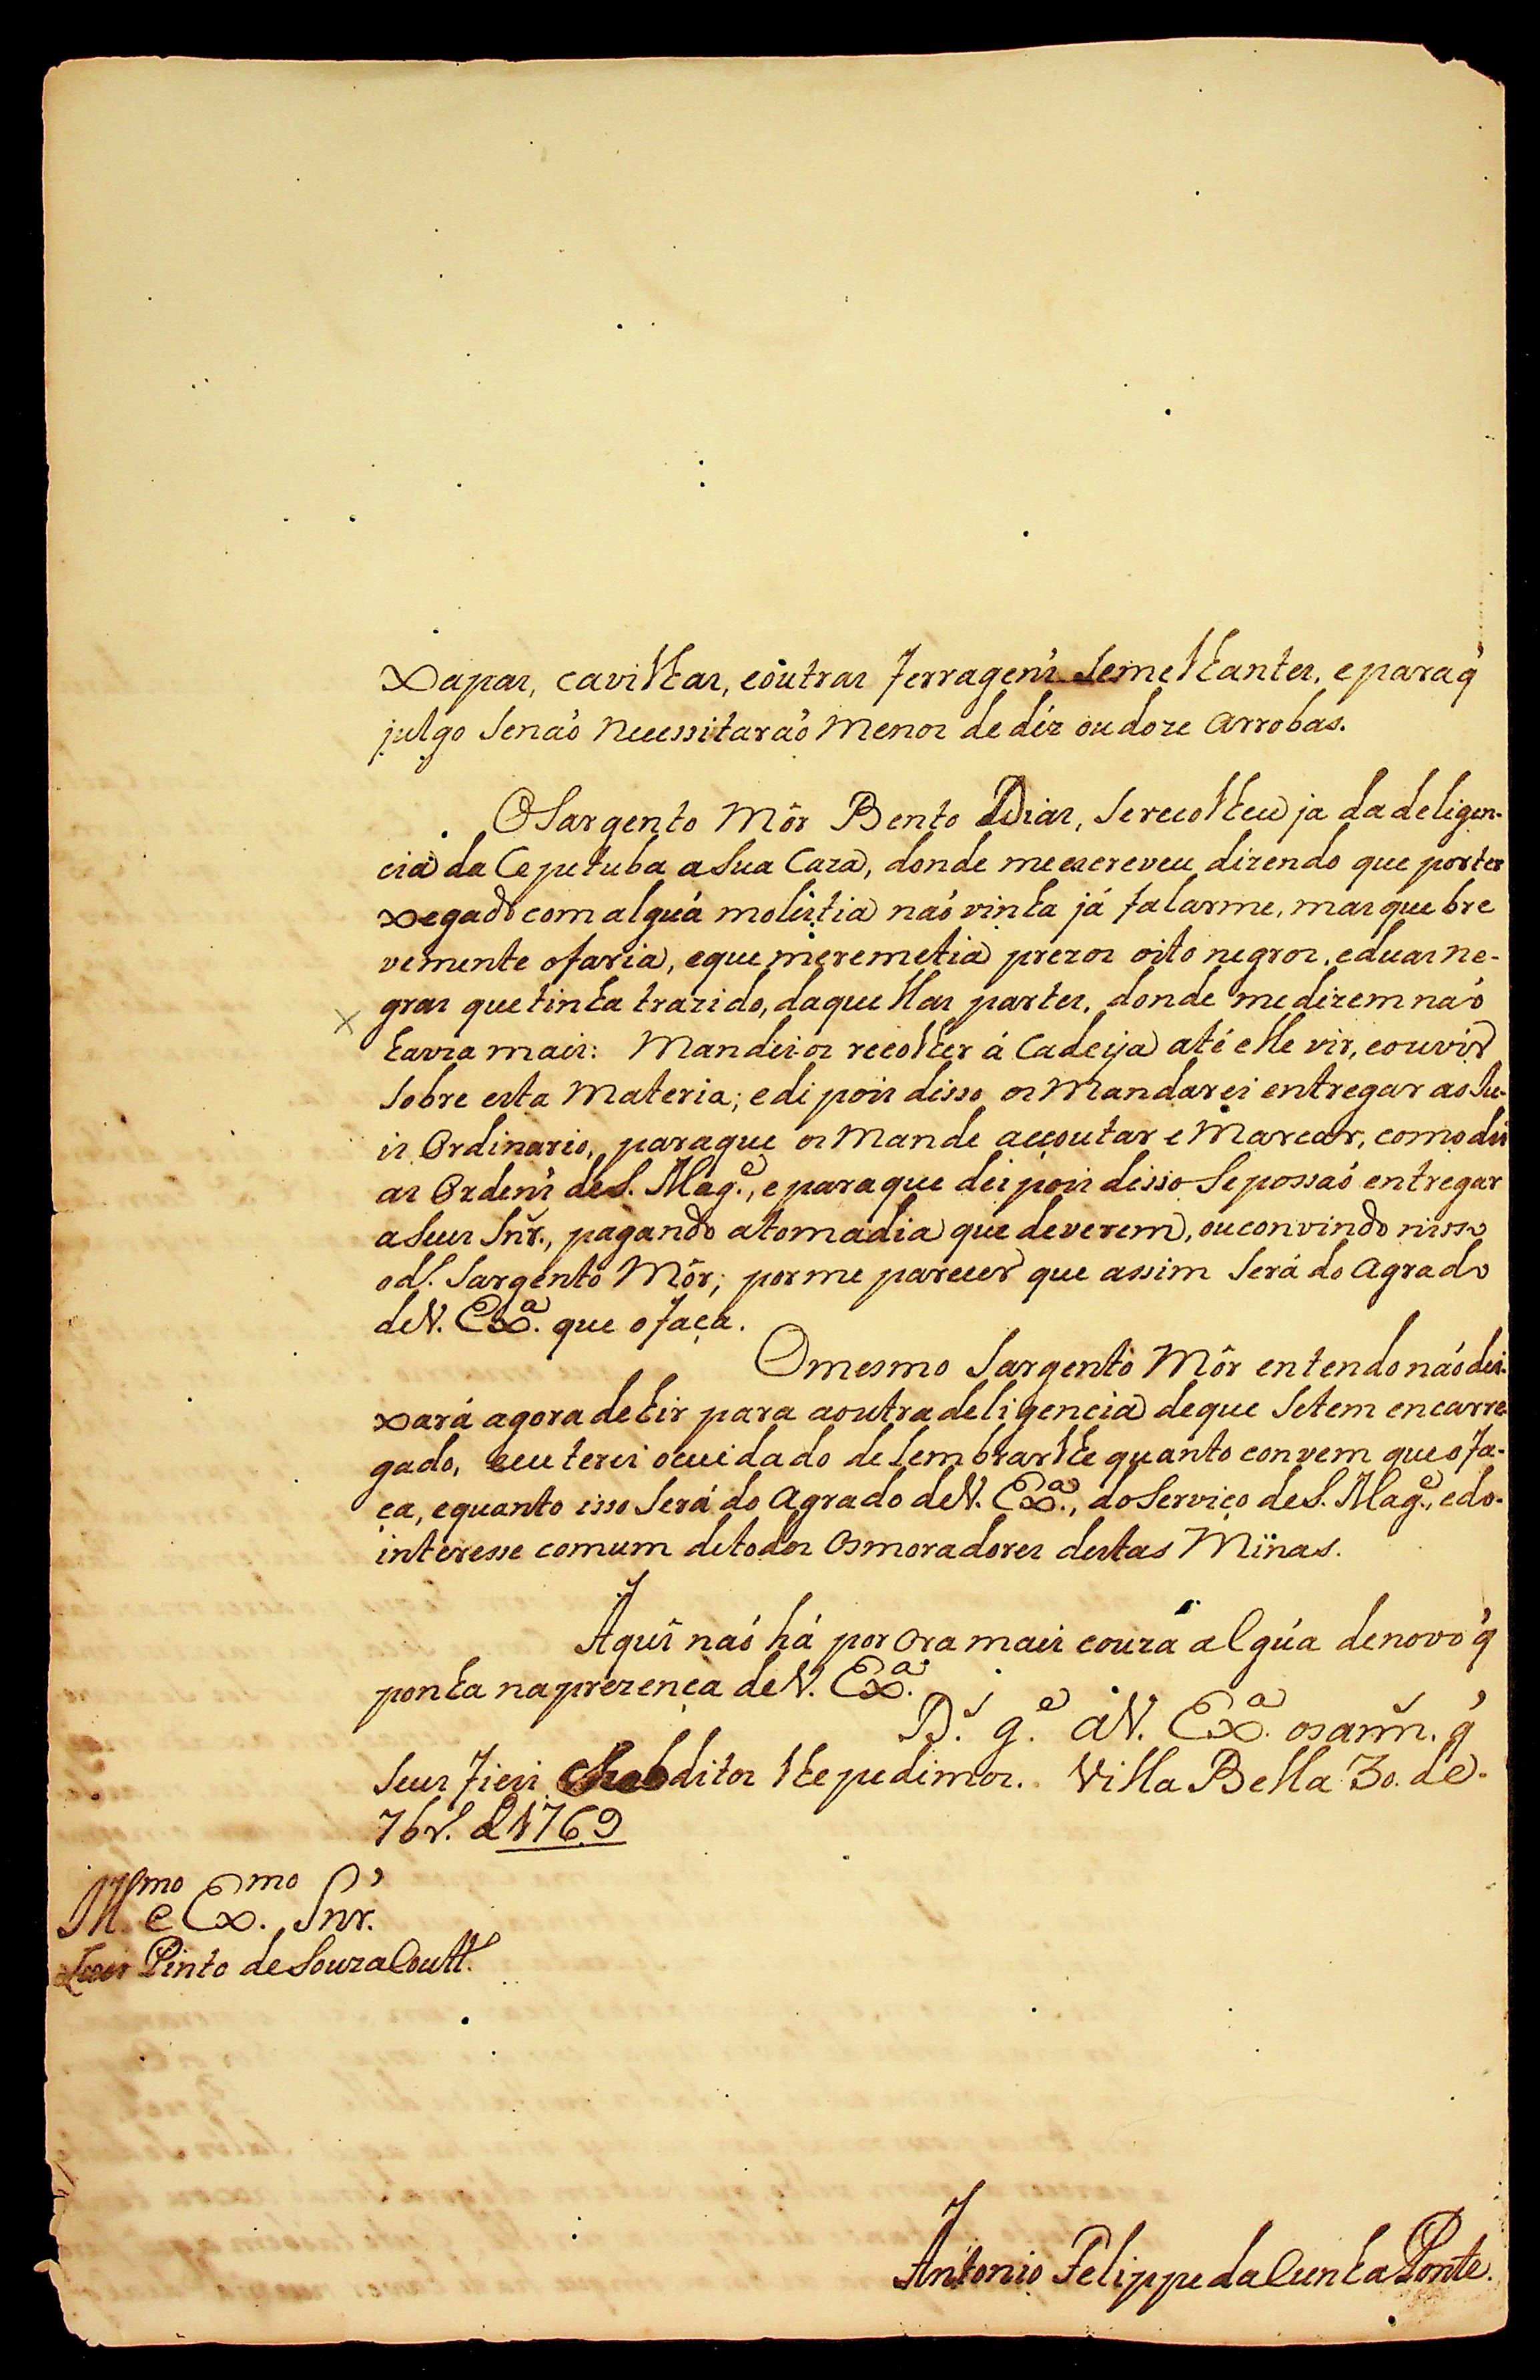 Xapas, cavilhas, e outras ferragens semelhantes, e para q̃
julgo senaõ necessitaraõ menos de déz ou doze arrobas.
O Sargento Môr Bento Dias, se recolheu ja da deligen-
cia da Ceputuba a sua Caza, donde me escreveu dizendo que por ter
xegado com algúa molestia naõ vinha já falarme, mas que bre
vemente o faria, e que me remetia prezos oito negros, e duas ne-
gras que tinha trazido, daquellas partes, donde me dizem naõ
havia mais: Mandei os recolher á Cadeya até elle vir, e ouvir
sobre esta materia; e di pois disso os Mandarei entregar ao Ju-
is Ordinario, para que os Mande accoutar e Marcar, como diz
as Ordens de S. Mag.e, e para que dei pois disso se possaõ entregar
a seus Snr̃., pagando a tomadia que deverem, ou convindo nisso
o d.o Sargento Môr; por me parecer que assim será do agrado
de V. Ex.a que o faça.
O mesmo Sargento Môr entendo naõ dei-
xará agora de hir para a outra deligencia de que se tem encarre-
gado, e eu terei o cuidado de lembrarlhe quanto convem que o fa-
ça, e quanto isso será do agrado de V. Ex.a, do Serviço de S. Mag.e, e do
interesse comum de todos os moradores destas Minas.
Aqui naõ há por ora mais couza algúa de novo q̃
ponha na prezença de V. Ex.a
D.s g.e a V. Ex.a os ann. q̃
seus fieis subditos lhe pedimos. Villa Bella 30. de
7br.o d 1769
Ill.mo e Ex.mo Snr.
Luis Pinto de Souza Coutt.o
Antonio Felippe da Cunha Ponte.